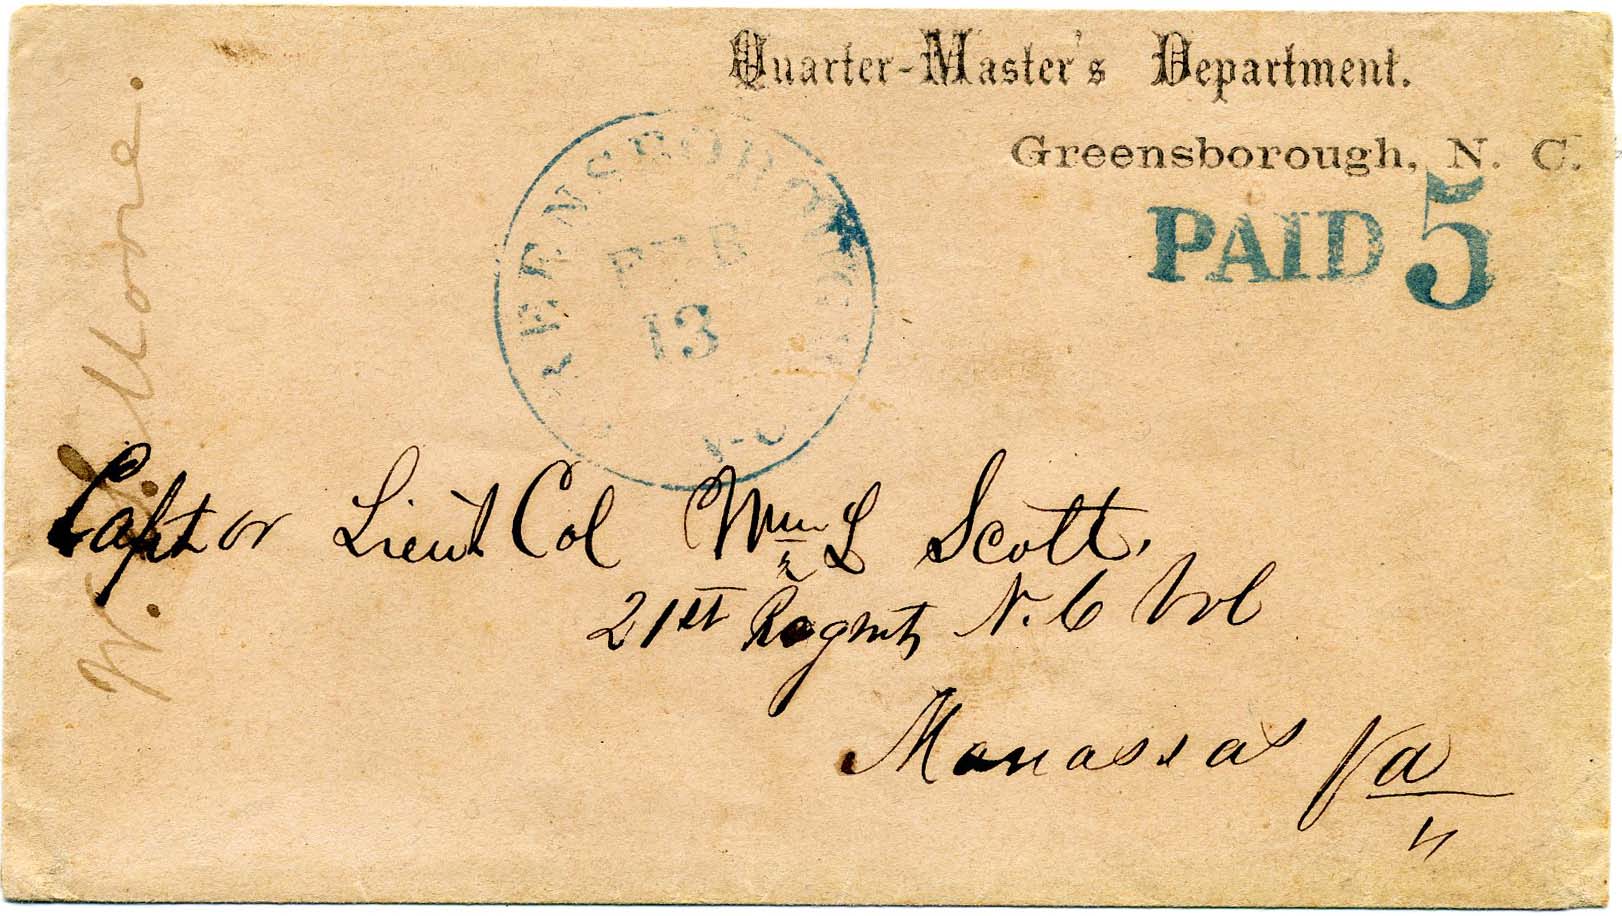 Quarter-Master's Department.
Greensborough, N. C.
PAID 5
GREENSBOROUGH
FEB
13
N.C
W. J. Moore.
Capt or Lieut Col Wm L Scott.
21st Regmt N. C Vol
Manassas Va